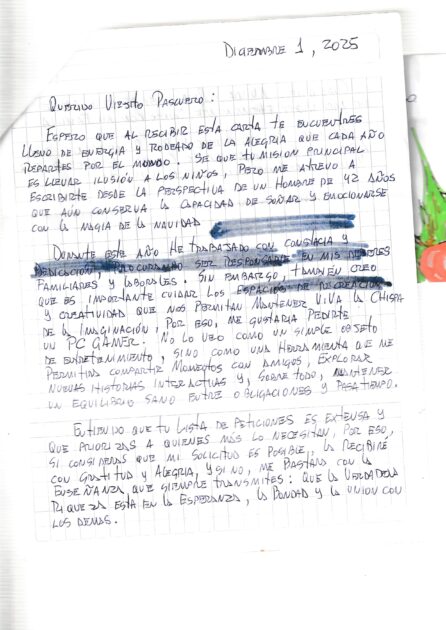 DICIEMBRE 1, 2025
QUERIDO VIEJITO PASCUERO:
ESPERO QUE AL RECIBIR ESTA CARTA TE ENCUENTRES
LLENO DE ENERGIA Y RODEADO DE LA ALEGRIA QUE CADA AÑO
REPARTES POR EL MUNDO. SE QUE TU MISION PRINCIPAL
ES LLEVAR ILUSIÓN A LOS NIÑOS, PERO ME ATREVO A
ESCRIBIRTE DESDE LA PERSPECTIVA DE UN HOMBRE DE 42 AÑOS
QUE AÚN CONSERVA LA CAPACIDAD DE SOÑAR Y EMOCIONARSE
CON LA MAGIA DE LA NAVIDAD
DURANTE ESTE AÑO HE TRABAJADO CON CONSTACIA Y
DEDICACION, PROCURANDO SER RESPONSABLE EN MIS DEBERES
FAMILIARES Y LABORALES. SIN EMBARGO, TAMBIEN CREO
QUE ES IMPORTANTE CUIDAR LOS ESPACIOS DE RECREACION
Y CREATIVIDAD QUE NOS PERMITAN MANTENER VIVA LA CHISPA
DE LA IMAGINACIÓN, POR ESO, ME GUSTARIA PEDIRTE
UN PC GAMER. NO LO VEO COMO UN SIMPLE OBJETO
DE ENTRETENIMIENTO, SINO COMO UNA HERRAMIENTA QUE ME
PERMITIRA COMPARTIR MOMENTOS CON AMIGOS, EXPLORAR
NUEVAS HISTORIAS INTERACTIVAS Y, SOBRE TODO, MANTENER
UN EQUILIBRIO SANO ENTRE OBLIGACIONES Y PASATIEMPO.
ENTIENDO QUE TU LISTA DE PETICIONES ES EXTENSA Y
QUE PRIORIZAS A QUIENES MÁS LO NECESITAN, POR ESO,
SI CONSIDERAS QUE MI SOLICITUD ES POSIBLE, LA RECIBIRÉ
CON GRATITUD Y ALEGRIA, Y SI NO, ME BASTARA CON LA
ENSEÑANZA QUE SIEMPRE TRANSMITES: QUE LA VERDADERA
RIQUEZA ESTA EN LA ESPERANZA, LA BONDAD Y LA UNION CON
LOS DEMAS.